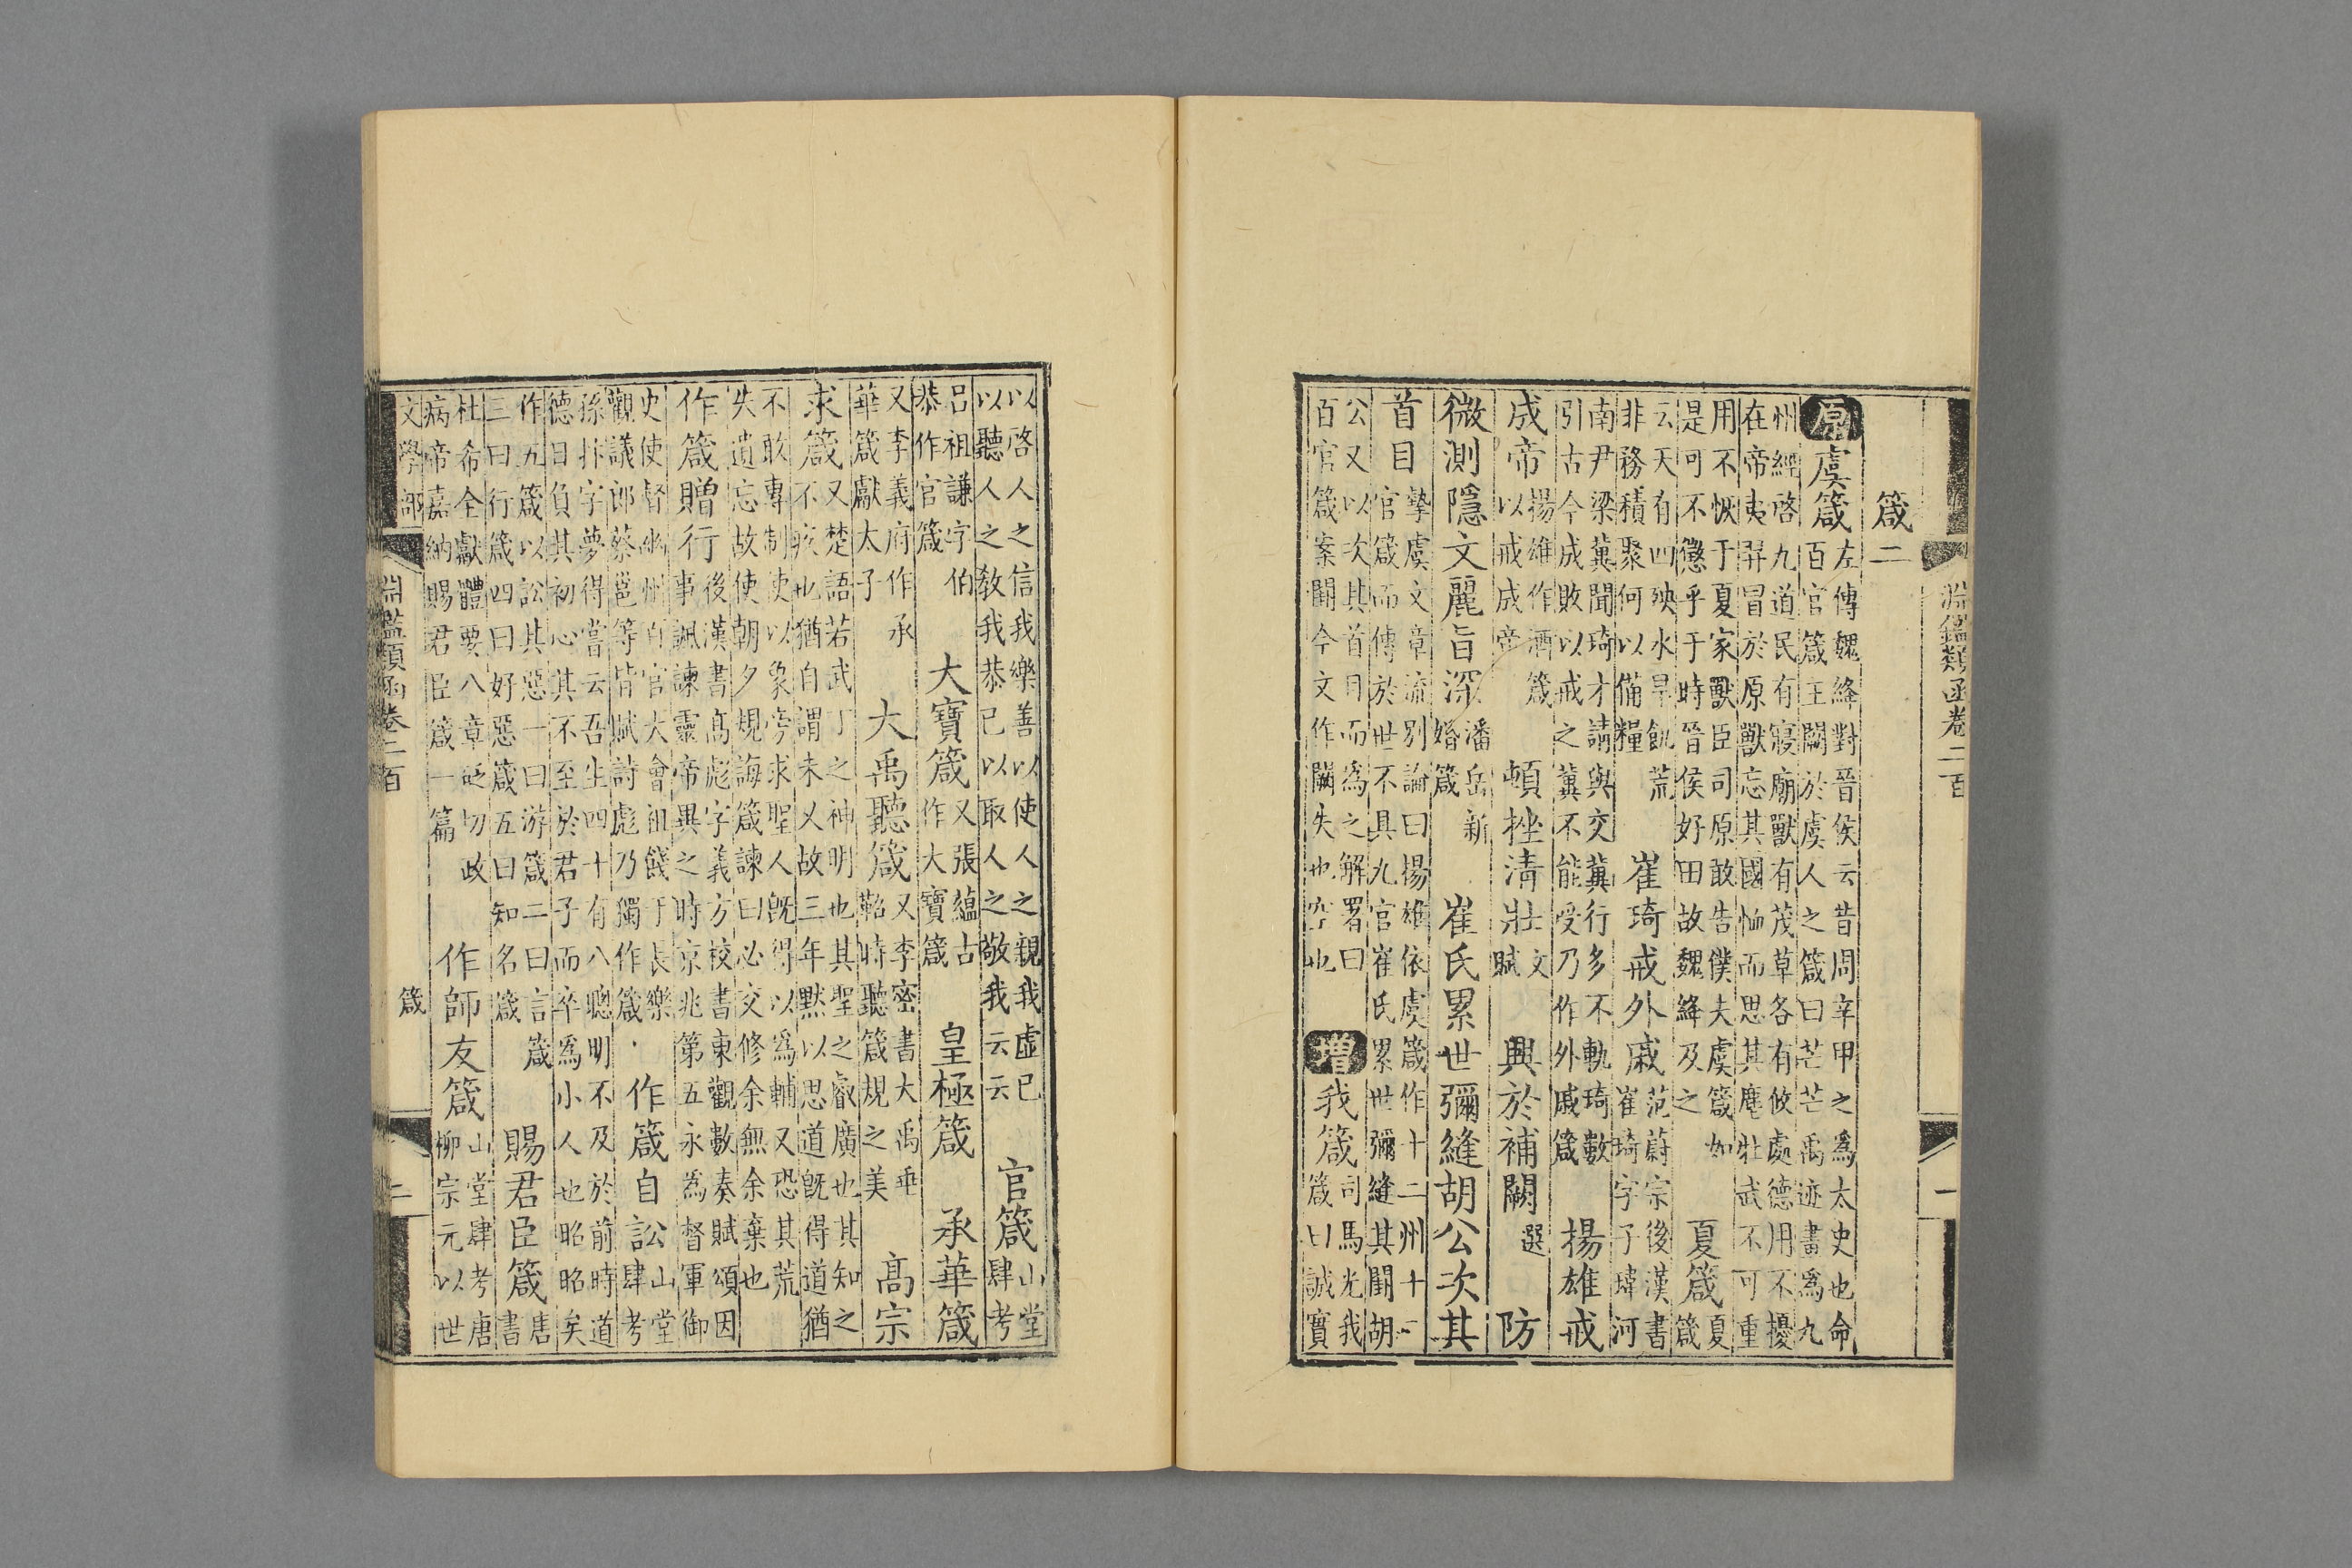 淵鑑類函卷二百
一
箴二
原虞箴左傳魏絳對晉侯云昔周辛甲之為太史也命
百官箴王闕於虞人之箴曰芒芒禹迹畫為九
州經啓九道民有寢廟獸有茂草各有攸處德用不擾
在帝夷羿冒於原獸忘其國恤而思其麀牡武不可重
用不恢于夏家獸臣司原敢告僕夫虞箴如
是可不懲乎于時晉侯好田故魏絳及之
夏箴夏箴
云天有四殃水旱飢荒
非務積聚何以備糧
崔琦戒外戚范蔚宗後漢書
崔琦字子瑋河
南尹梁冀聞琦才請與交冀行多不軌琦數
引古今成敗以戒之冀不能受乃作外戚箴
揚雄戒
成帝揚雄作酒箴
以戒成帝
頓挫清壯文
賦
興於補闕選
防
微測隱文麗旨深潘岳新
婚箴
崔氏累世彌縫胡公次其
首目摯虞文章流別論曰揚雄依虞箴作十二州十二
官箴而傳於世不具九官崔氏累世彌縫其闕胡
公又以次其首目而為之解署曰
百官箴案闕今文作闕失也空也
增我箴司馬光我
箴曰誠實
以啓人之信我樂善以使人之親我虛己
以聽人之教我恭己以取人之敬我云云
官箴山堂
肆考
呂祖謙字伯
恭作官箴
大寶箴又張蘊古
作大寶箴
皇極箴
承華箴
又李義府作承
華箴獻太子
大禹聽箴又李密書大禹垂
鞀時聽箴規之美
高宗
求箴又楚語若武丁之神明也其聖之叡廣也其知之
不疚也猶自謂未乂故三年默以思道既得道猶
不敢專制使以象旁求聖人既得以為輔又恐其荒
失遺忘故使朝夕規誨箴諫曰必交修余無余棄也
作箴贈行後漢書高彪字義方校書東觀數奏賦頌因
事諷諫靈帝異之時京兆第五永為督軍御
史使督幽州百官大會祖餞于長樂
觀議郎蔡邕等皆賦詩彪乃獨作箴
作箴自訟山堂
肆考
孫抃字夢得嘗云吾生四十有八聰明不及於前時道
德日負其初心其不至於君子而卒為小人也昭昭矣
作五箴以訟其惡一曰游箴二曰言箴
三曰行箴四曰好惡箴五曰知名箴
賜君臣箴唐
書
杜希全獻體要八章砭切政
病帝嘉納賜君臣箴一篇
作師友箴山堂肆考唐
柳宗元以世
文學部
箴
淵鑑類函卷二百
二